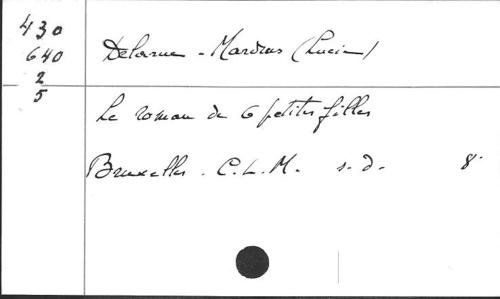 430
640
2
5
Delarue-Mardrus (Lucie)
Le roman de 6 petites filles
Bruxelles. C.L.M. s.d. 8°